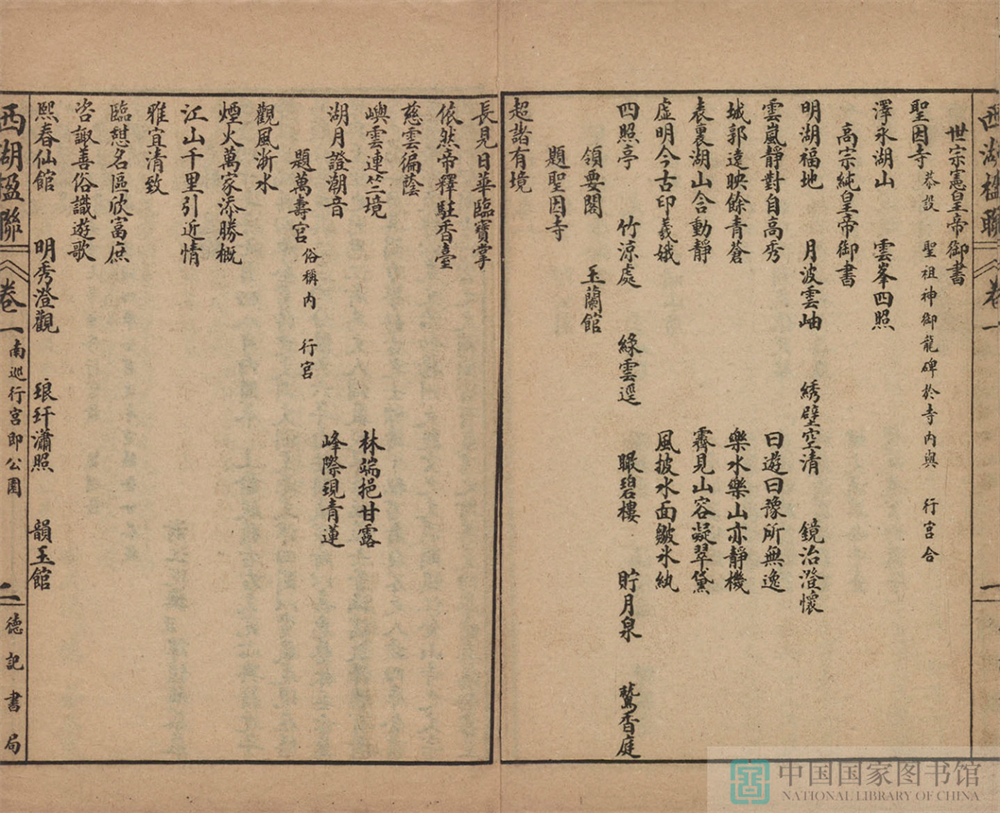 西湖楹聯 卷一
一
世宗憲皇帝御書
聖因寺 恭設 聖祖神御龍碑於寺內與 行宮合
澤永湖山 雲峯四照
高宗純皇帝御書
明湖福地 月波雲岫 綉壁空清 鏡治澄懷
雲嵐靜對自高秀 日遊日豫所無逸
城郭遠映餘青蒼 樂水樂山亦靜機
表裏湖山合動靜 霽見山容凝翠黛
虛明今古印羲娥 風披水面皺冰紈
四照亭 竹涼處 綠雲逕 眠碧樓 貯月泉 鷲香庭
領要閣 玉蘭館
題聖因寺
超諸有境
長見日華臨寶掌
依然帝釋駐香臺
慈雲徧蔭
嶼雲連竺境 林端挹甘露
湖月證潮音 峰際現青蓮
題萬壽宮 俗稱內 行宮
觀風浙水
煙火萬家添勝概
江山千里引近情
雅宜清致
臨憇名區欣富庶
咨諏善俗識遊歌
熙春仙館 明秀澄觀 琅玕瀟照 韻玉館
西湖楹聯 卷一 南巡行宮即公園 二 德記書局
中国国家图书馆
NATIONAL LIBRARY OF CHINA